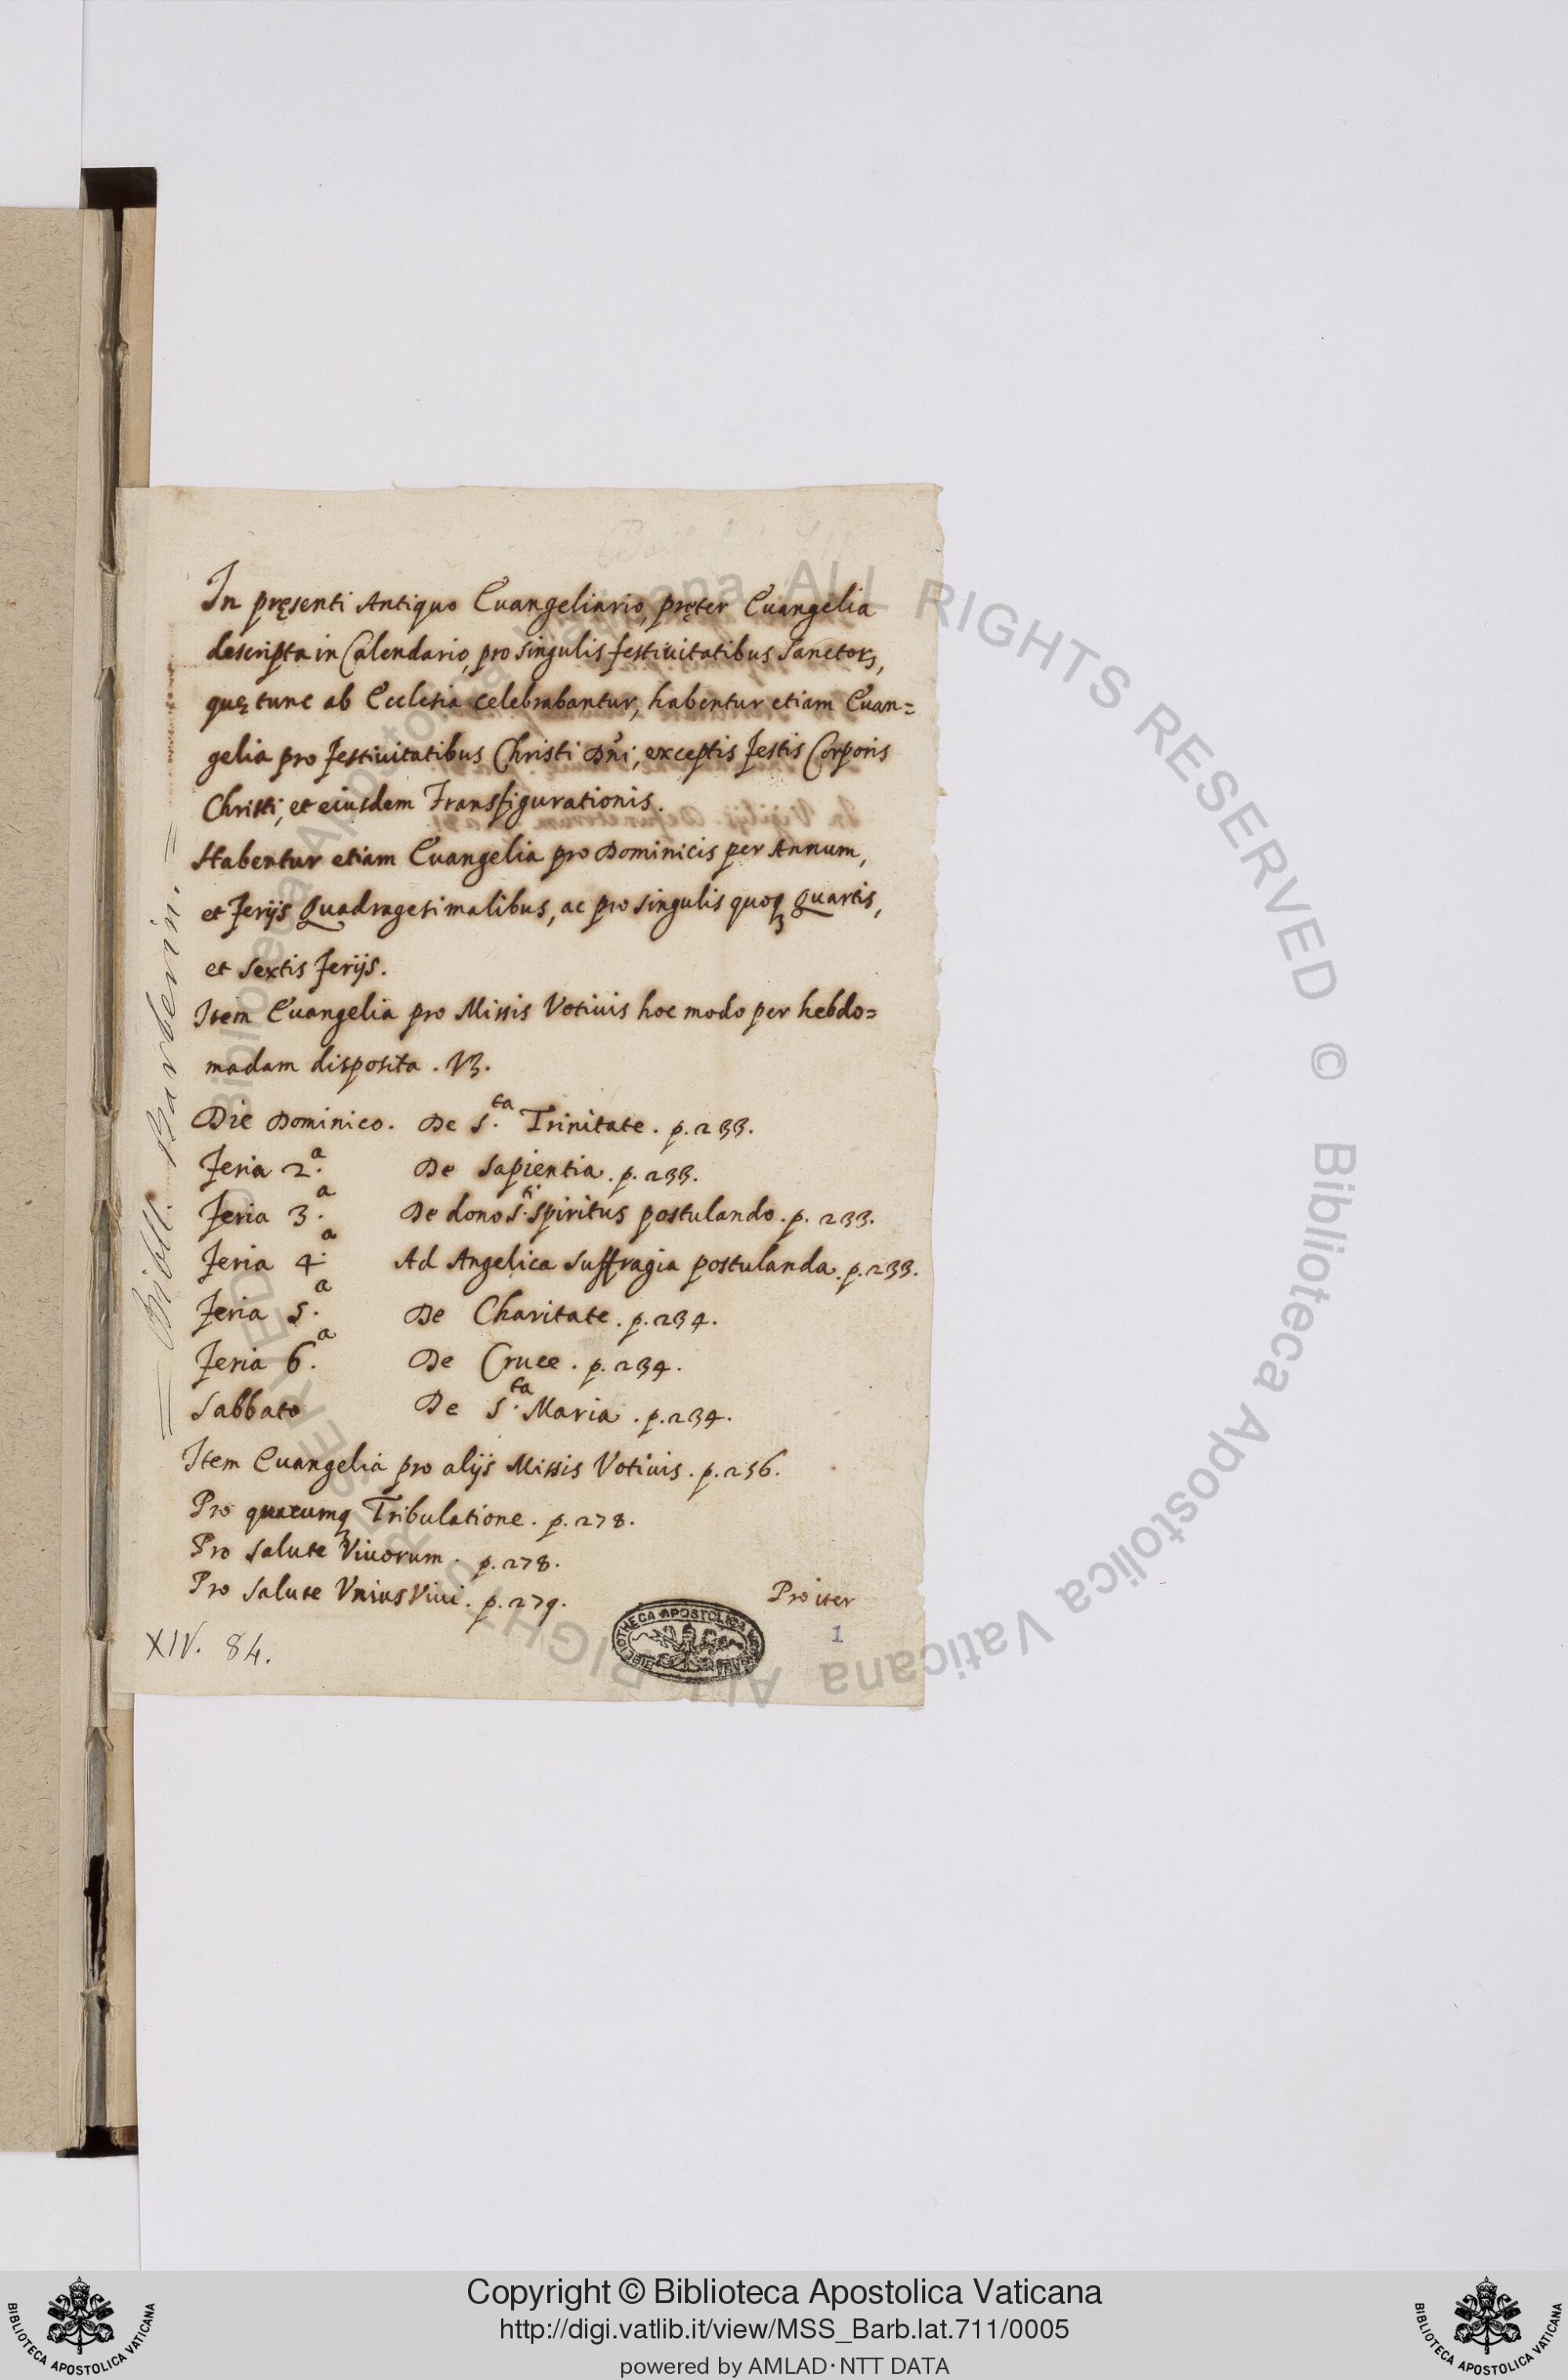 In pręsenti Antiquo Euangeliario, pręter Euangelia
descripta in Calendario, pro singulis festiuitatibus Sanctorꝫ,
quę tunc ab Ecclesia celebrabantur, habentur etiam Euan=
gelia pro festiuitatibus Christi Dñi, exceptis festis Corporis
Christi, et eiusdem Transfigurationis.
Habentur etiam Euangelia pro Dominicis per Annum,
et ferijs Quadragesimalibus, ac pro singulis quoqꝫ quartis,
et sextis ferijs.
Item Euangelia pro Missis Votiuis hoc modo per hebdo=
madam disposita. Vꝫ.
Die Dominico. De S.ta Trinitate. p. 233.
Feria 2.a De Sapientia. p. 233.
Feria 3.a De dono S.ti Spiritus postulando. p. 233.
Feria 4.a Ad Angelica suffragia postulanda. p. 233.
Feria 5.a De Charitate. p. 234.
Feria 6.a De Cruce. p. 234.
Sabbato De S.ta Maria. p. 234.
Item Euangelia pro alijs Missis Votiuis. p. 256.
Pro quacumqꝫ Tribulatione. p. 278.
Pro salute Viuorum. p. 278.
Pro salute Vnius Viui. p. 279.
Pro iter
XIV. 84.
1
= Bibll. Barberin. =
BIBLIOTHECA APOSTOLICA
Biblioteca Apostolica Vaticana ALL RIGHTS RESERVED ©
Biblioteca Apostolica Vaticana ALL RIGHTS RESERVED
Copyright © Biblioteca Apostolica Vaticana
http://digi.vatlib.it/view/MSS_Barb.lat.711/0005
powered by AMLAD·NTT DATA
BIBLIOTECA APOSTOLICA VATICANA
BIBLIOTECA APOSTOLICA VATICANA